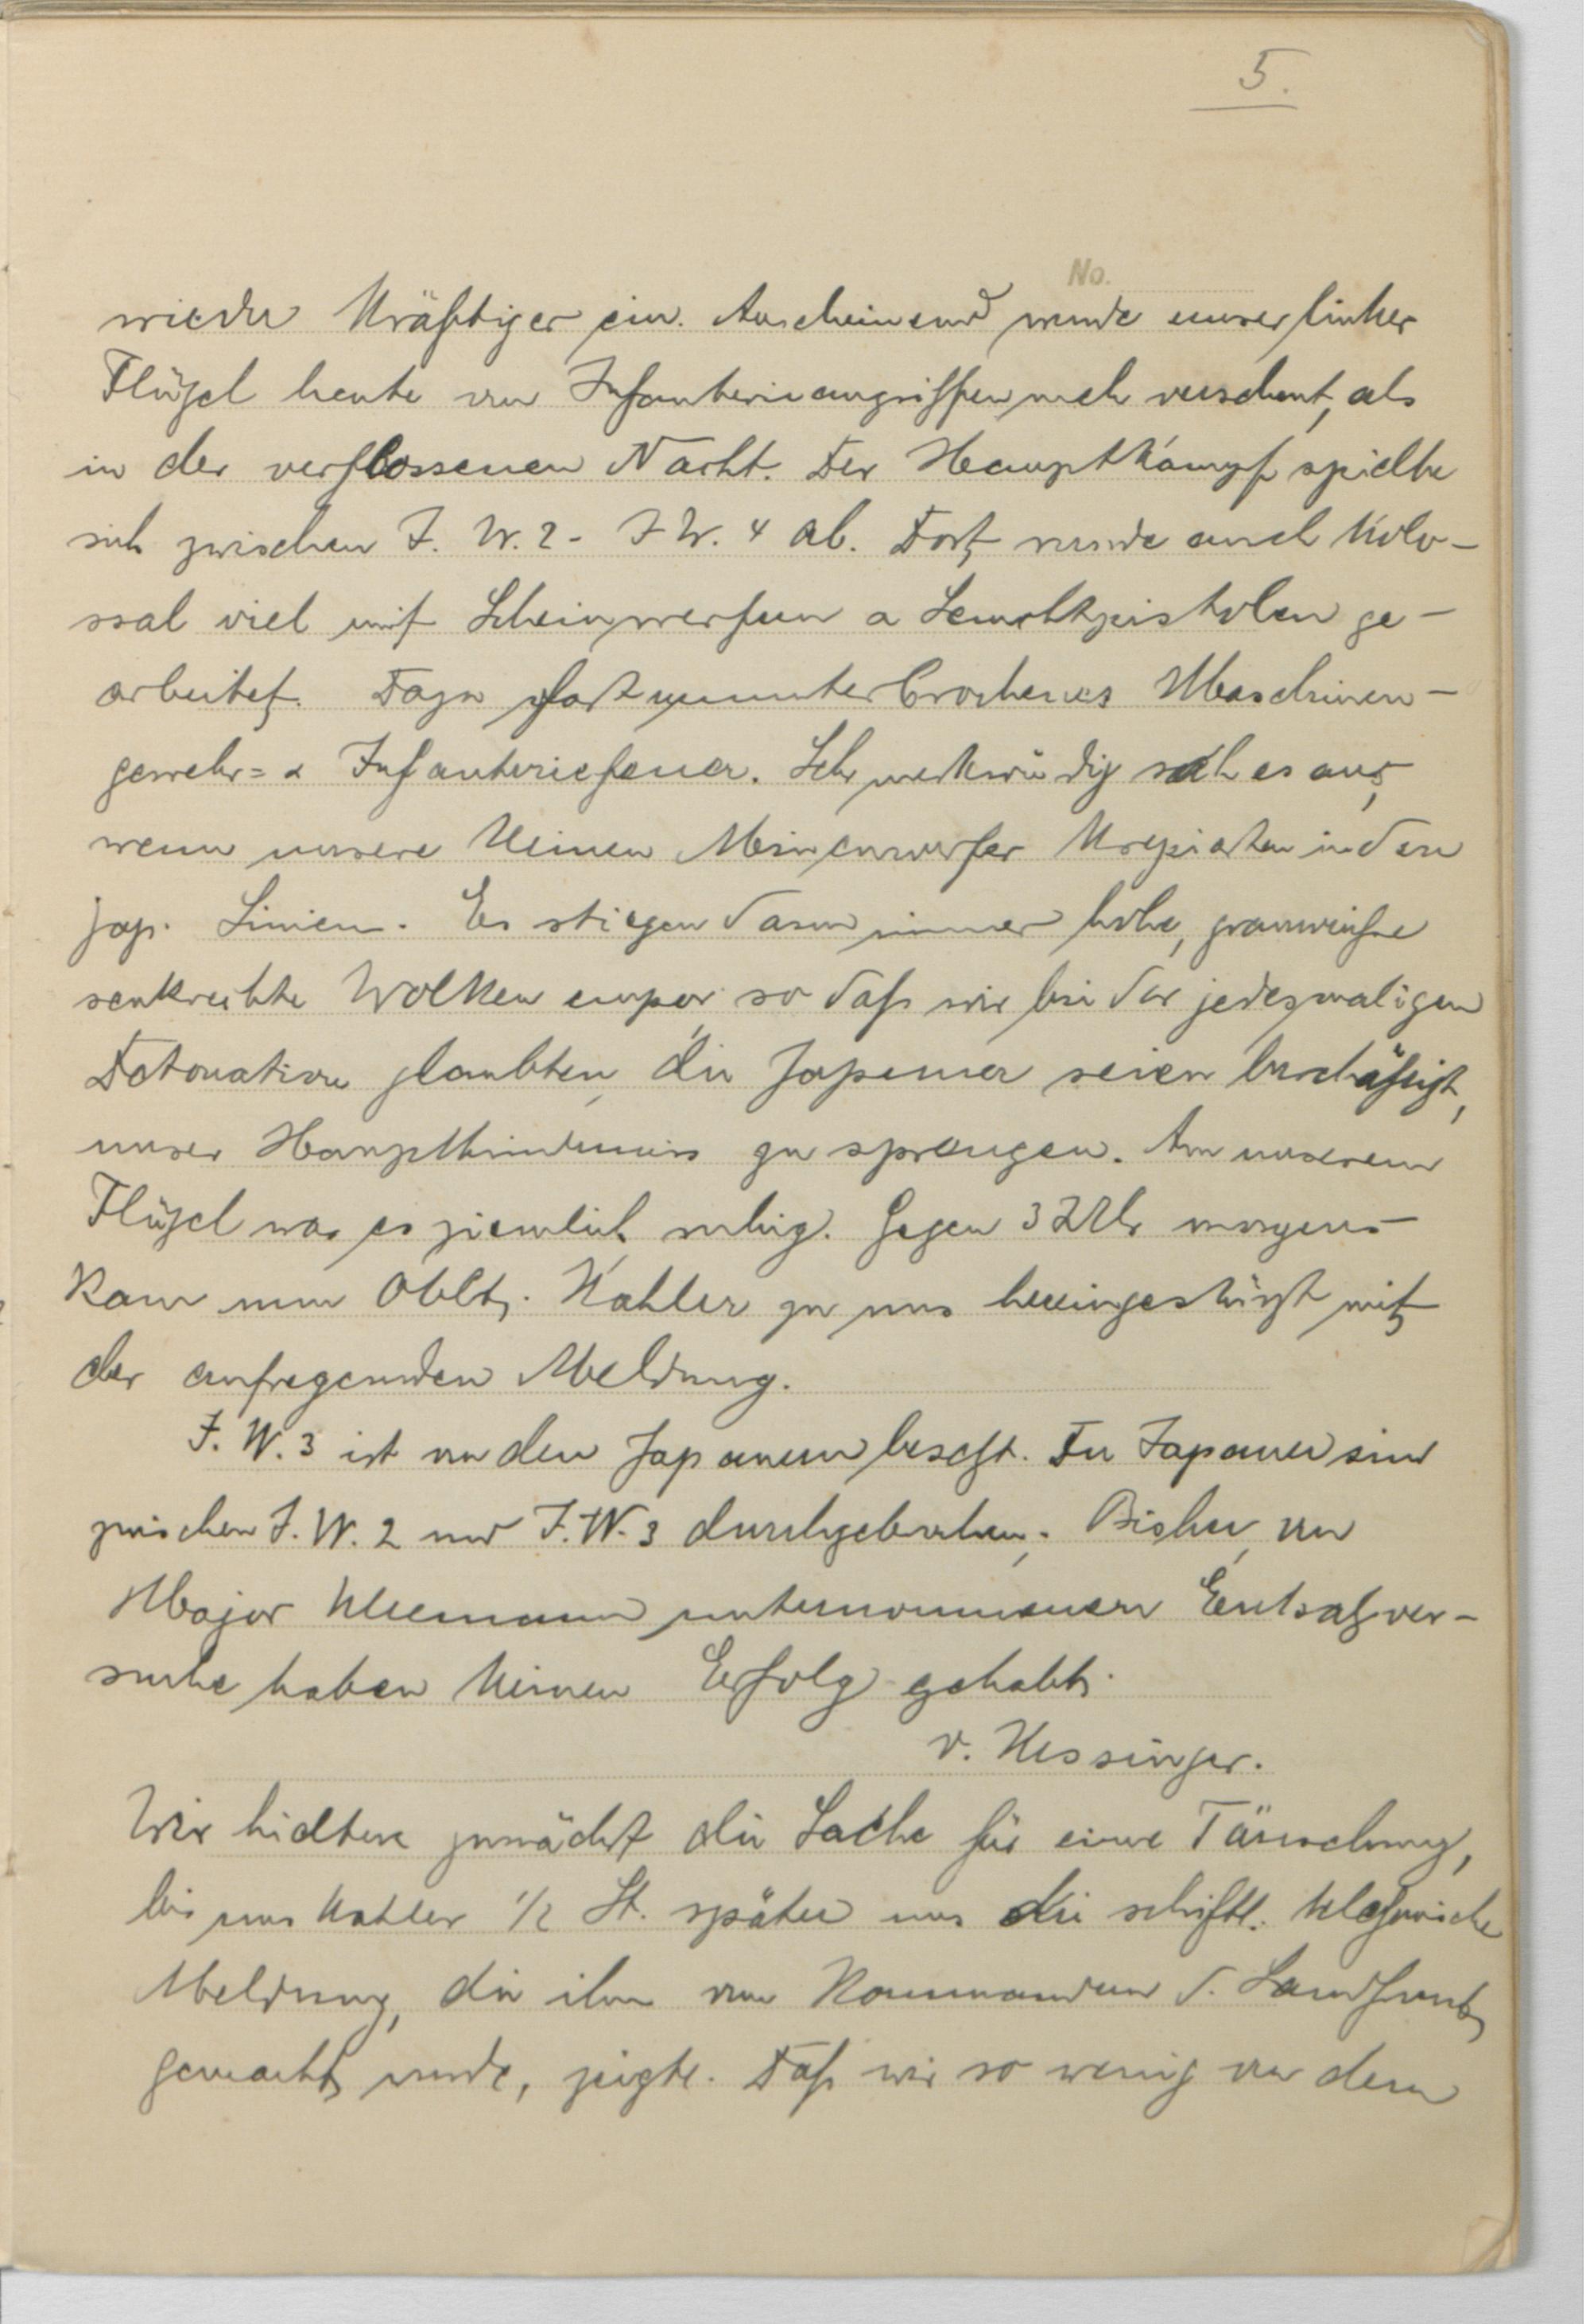 5.
No.
wieder kräftiger ein. Anscheinend wurde unser linker
Flügel heute von Infanterieangriffen mehr verschont, als
in der verflossenen Nacht. Der Hauptkampf spielte
sich zwischen J. W. 2 - J W. 4 ab. Dort wurde auch kolo-
ssal viel mit Scheinwerfern u Leuchtpistolen ge-
arbeitet. Dazu fast ununterbrochenes Maschinen-
gewehr= u Infanteriefeuer. Sehr merkwürdig sah es aus,
wenn unsere kleinen Minenwerfer krepierten in den
jap. Linien. Es stiegen dann immer hohe, grauweiße
senkrechte Wolken empor so daß wir bei der jedesmaligen
Detonation glaubten, die Japaner seien beschäftigt,
unser Haupthindernis zu sprengen. An unserem
Flügel war es ziemlich ruhig. Gegen 3 Uhr morgens
kam nun Oblt. Kahler zu uns hereingestürzt mit
der aufregenden Meldung.
J. W. 3 ist von den Japanern besetzt. Die Japaner sind
zwischen J. W. 2 und J. W. 3 durchgebrochen. Bisher, von
Major Kleemann unternommenen Entsatzver-
suche haben keinen Erfolg gehabt.
v. Kessinger.
Wir hielten zunächst die Sache für eine Täuschung,
bis uns Kahler 1/2 St. später uns die schriftl.
Meldung, die ihm vom Kommandeur d. Landfront
gemacht wurde, zeigte. Daß wir so wenig von dem